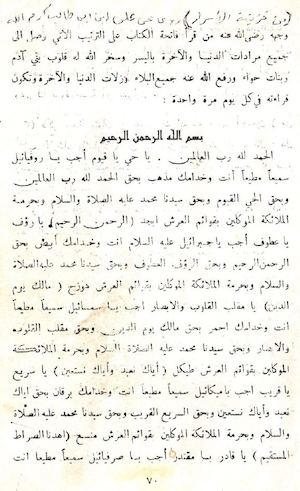 (من خزينة الأسرار) روي عن علي ابن ابي طالب كرم الله
وجهه رضي الله عنه من قرأ فاتحة الكتاب على الترتيب الآتي وصل الى
جميع مرادات الدنيا والآخرة باليسر وسخر الله له قلوب بني آدم
وبنات حواء ورفع الله عنه جميع البلاء وزلات الدنيا والآخرة وتكون
قراءته في كل يوم مرة واحدة :
بسم الله الرحمن الرحيم
الحمد لله رب العالمين . يا حي يا قيوم أجب يا روقيائيل
سميعاً مطيعاً أنت وخدامك مذهب بحق الحمد لله رب العالمين
وبحق الحي القيوم وبحق سيدنا محمد عليه الصلاة والسلام وبحرمة
الملائكة الموكلين بقوائم العرش ابجد ( الرحمن الرحيم ) يا رؤف
يا عطوف أجب يا جبرائيل عليه السلام انت وخدامك أبيض بحق
الرحمن الرحيم وبحق الرؤف العطوف وبحق سيدنا محمد عليه الصلاة
والسلام وبحرمة الملائكة الموكلين بقوائم العرش هوزح ( مالك يوم
الدين ) يا مقلب القلوب والابصار اجب يا سمسائيل سميعاً مطيعاً
انت وخدامك احمر بحق مالك يوم الدين وبحق مقلب القلوب
والابصار وبحق سيدنا محمد عليه الصلاة والسلام وبحرمة الملائكة
الموكلين بقوائم العرش طيكل ( أياك نعبد وأياك نستعين ) يا سريع
يا قريب اجب يا ميكائيل سميعاً مطيعاً انت وخدامك برقان بحق اياك
نعبد وأياك نستعين وبحق السريع القريب وبحق سيدنا محمد عليه الصلاة
والسلام وبحرمة الملائكة الموكلين بقوائم العرش منسع ( اهدنا الصراط
المستقيم ) يا قادر يا مقتدر أجب يا صرفيائيل سميعاً مطيعاً انت
٧٠